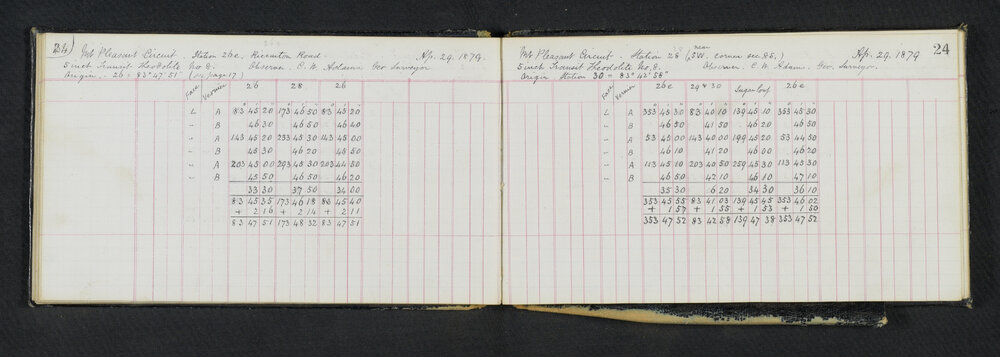 24)
Mt Pleasant Circuit. Station 26c, Riccarton Road Ap. 29. 1879
5 inch Transit Theodolite No 8. Observer. C. W. Adams Geo Surveyor
Origin.. 26 = 83° 47' 51" (on page 17)
Face Vernier 26 28 26
L A 83 45 20 173 46 50 83 45 20
" B 46 30 46 50 46 40
" A 143 45 20 233 45 30 143 45 00
" B 45 30 46 20 45 50
" A 203 45 00 293 45 30 203 44 50
" B 45 50 46 50 46 20
33 30 37 50 34 00
83 45 35 173 46 18 83 45 40
+ 2 16 + 2 14 + 2 11
83 47 51 173 48 32 83 47 51
24
near
Mt Pleasant Circuit Station 28 (SW. corner sec 85,) Ap. 29. 1879
5 inch Transit Theodolite No 8. Observer C. W. Adams. Geo. Surveyor.
Origin Station 30 = 83° 42' 58"
Face Vernier 26c 29 & 30 Sugar loaf 26c
L A 353 45 30 83 40 10 139 45 10 353 45 30
" B 46 50 41 50 46 20 46 20
" A 53 45 00 143 40 00 199 45 20 53 44 50
" B 46 10 41 20 46 00 46 20
" A 113 45 10 203 40 50 259 45 30 113 45 30
" B 46 50 42 10 46 10 47 10
35 30 6 20 34 30 36 10
353 45 55 83 41 03 139 45 45 353 46 02
+ 1 57 + 1 55 + 1 53 + 1 50
353 47 52 83 42 58 139 47 38 353 47 52